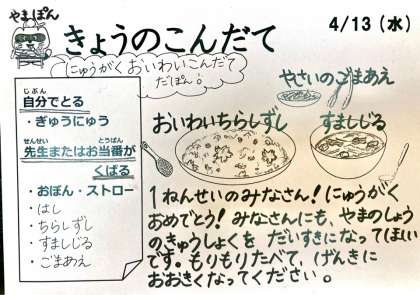 やまぽん
きょうのこんだて
4/13(水)
にゅうがくおいわいこんだて
だぽん!
やさいのごまあえ
おいわいちらしずし
すましじる
自分でとる
じぶん
・ぎゅうにゅう
せんせい
とうばん
先生またはお当番が
くばる
・おぼん・ストロー
・はし
・ちらしずし
・すましじる
・ごまあえ
1ねんせいのみなさん!にゅうがく
おめでとう!みなさんにも、やまのしょう
のきゅうしょくを だいすきになってほしい
です。もりもりたべて、げんきに
おおきくなってください。